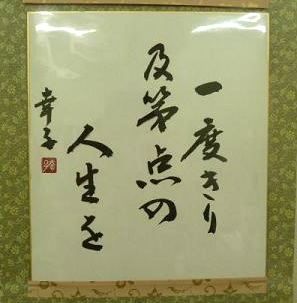 一度きり
及第点の
人生を
幸子